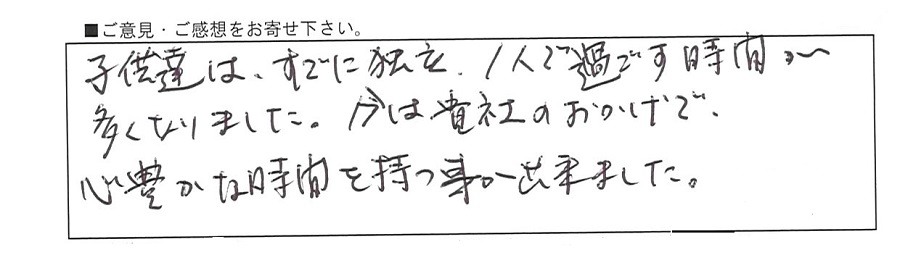 ■ご意見・ご感想をお寄せ下さい。
子供達は、すでに独立、1人で過ごす時間が
多くなりました。今は貴社のおかげで、
心豊かな時間を持つ事が出来ました。